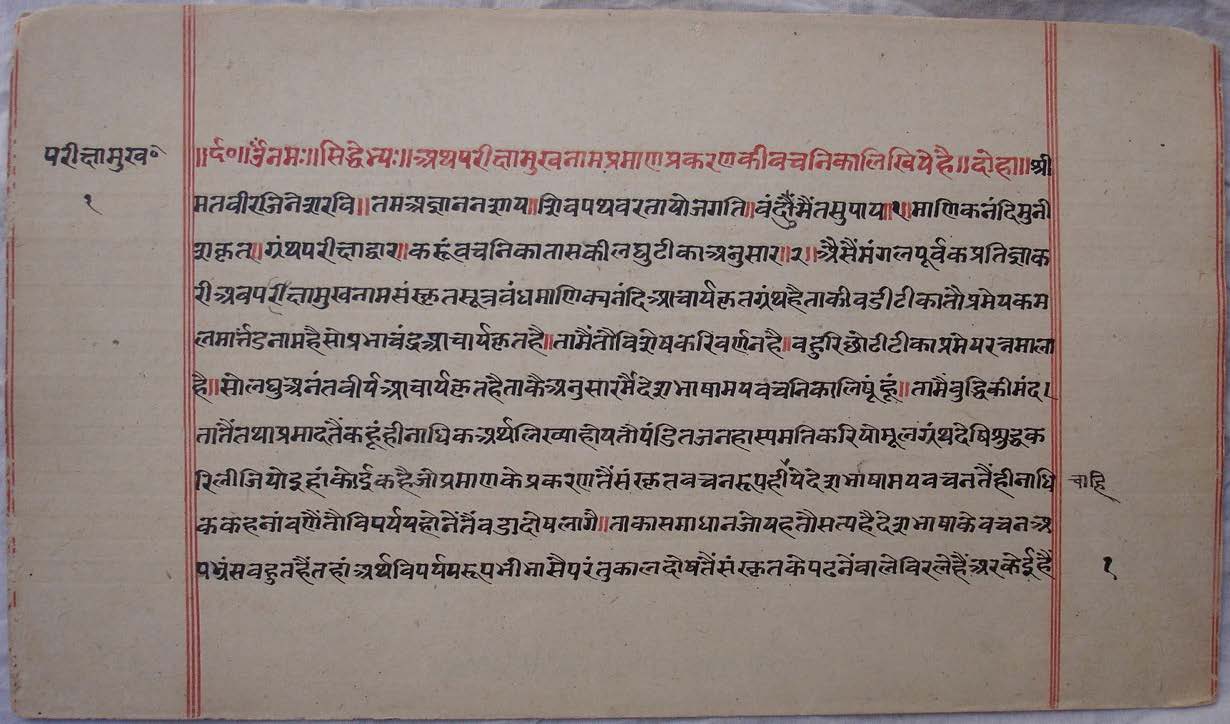 परीक्षामुख॰
१
॥र्द०॥ॐनमः॥सिद्धेभ्यः॥अथपरीक्षामुखनामप्रमाणप्रकरणकीवचनिकालिखियेहै॥दोहा॥श्री
मतवीरजिनेशरवि॥तमअज्ञाननशाय॥शिवपथवरतायोजगति॥वंदौंमैंतसुपाय॥१॥माणिकनंदिमुनी
शकृत॥ग्रंथपरीक्षाद्वार॥करूंवचनिकातासकीलघुटीकाअनुसार॥२॥अैसैंमंगलपूर्वकप्रतिज्ञाक
रीअवपरीक्षामुखनामसंस्कृतसूत्रवंधमाणिक्यनंदिआचार्यकृतग्रंथहैताकीवडीटीकातौप्रमेयकम
लमार्त्तंडनामहैसोप्रभाचंद्रआचार्यकृतहै॥तामैंतौविशेषकरिवर्णनहै॥वहुरिछोटीटीकाप्रमेयरत्नमाला
है॥सोलघुअनंतवीर्यआचार्यकृतहैताकैअनुसारमैंदेशभाषामयवचनिकालिषूंहूं॥तामैंवुद्धिकीमंद।
तातैंतथाप्रमादतैंकहूंहीनाधिकअर्थलिख्याहोयतौपंडितजनहास्यमतिकरियोमूलग्रंथदेषिशुद्धक
रिलीजियोइहांकोईकहैजोप्रमाणकेप्रकरणतैंसंस्कृतवचनरूपहीयेदेशभाषामयवचनतैंहीनाधि
चाहि
ककहनांवणैंतौविपर्ययहोनेंतैंवडादोषलागै॥ताकासमाधानजोयहतौसत्यहैदेशभाषाकेवचनअ
पभ्रंसवहुतहैंतहांअर्थविपर्ययरूपभीभासैपरंतुकालदोषतैंसंस्कृतकेपढनेंवालेविरलेहैंअरकेईहैं
१